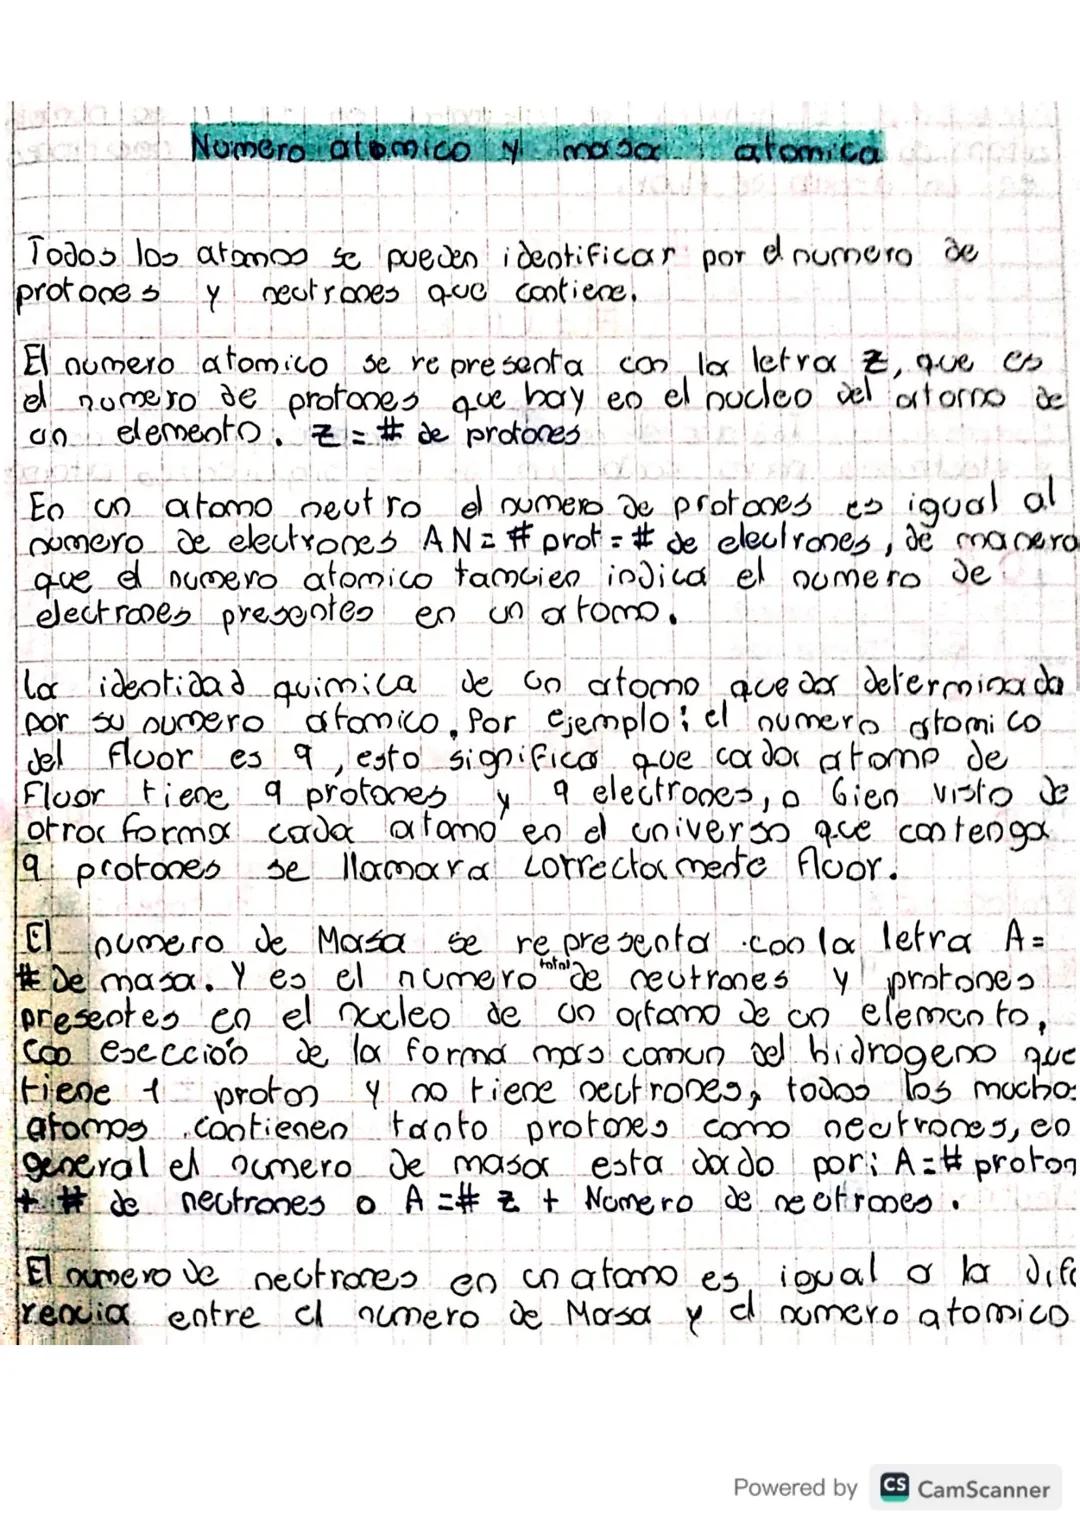 Numero atomico y masa atomica
Todos los atomos se pueden identificar por el numero de
protones y neutrones que contiene.
El numero atomico se representa con la letra Z, que es
el numero de protones que hay en el nucleo del atomo de
un elemento. Z = # de protones
En un atomo neutro el numero de protones es igual al
numero de electrones AN = # prot = # de electrones, de manera
que el numero atomico tamcien indica el numero de
electrones presentes en un atomo.
la identidad quimica de un atomo queda determinada
por su numero atomico, Por ejemplo: el numero atomico
del fluor es 9, esto significa que cada atomo de
Fluor tiene 9 protones y 9 electrones, o bien visto de
otra forma cada atomo en el universo que contenga
9 protones se llamara correctamente fluor.
El numero de Masa se representa con la letra A =
# De masa. Y es el numero total de neutrones y protones
presentes en el nucleo de un atomo de un elemento,
con esección de la forma mas comun del hidrogeno que
tiene 1 proton y no tiene neutrones, todos los muchos
atomos contienen tanto protones como neutrones, en
general el numero de masa esta dado por: A = # proton
+ # de neutrones o A = # Z + Numero de neutrones.
El numero de neutrones en un atomo es igual a la dife
rencia entre el numero de Masa y el numero atomico
Powered by CS CamScanner